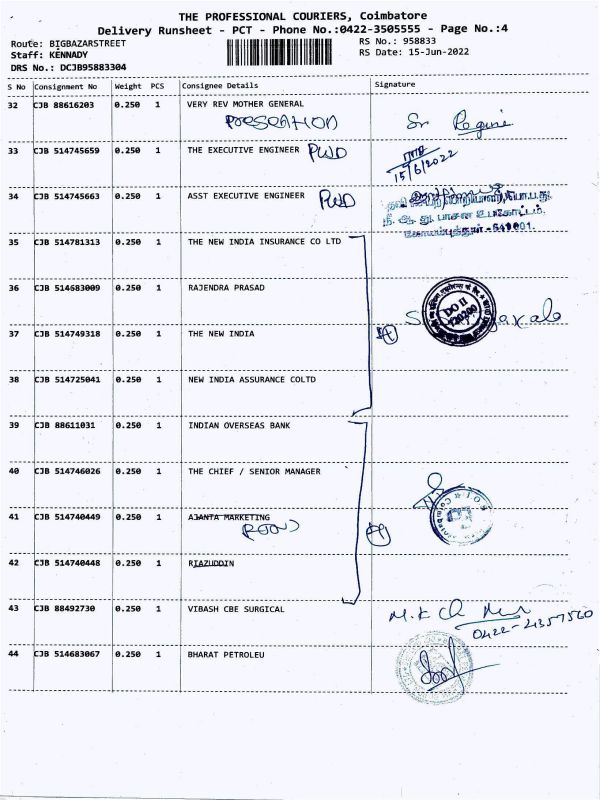 THE PROFESSIONAL COURIERS, Coimbatore
Delivery Runsheet - PCT - Phone No.:0422-3505555 - Page No.:4
Route: BIGBAZARSTREET
RS No.: 958833
Staff: KENNADY
RS Date: 15-Jun-2022
DRS No.: DCJB95883304
S No Consignment No Weight PCS Consignee Details Signature
32 CJB 88616203 0.250 1 VERY REV MOTHER GENERAL
Sr Regine
33 CJB 514745659 0.250 1 THE EXECUTIVE ENGINEER PWD
15/6/2022
34 CJB 514745663 0.250 1 ASST EXECUTIVE ENGINEER PWD
நீ. ஆ. து. பாசன உபகோட்டம்.
கோயம்புத்தூர் - 641001.
35 CJB 514781313 0.250 1 THE NEW INDIA INSURANCE CO LTD
36 CJB 514683009 0.250 1 RAJENDRA PRASAD
DO II
720200
37 CJB 514749318 0.250 1 THE NEW INDIA
4
38 CJB 514725041 0.250 1 NEW INDIA ASSURANCE COLTD
39 CJB 88611031 0.250 1 INDIAN OVERSEAS BANK
40 CJB 514746026 0.250 1 THE CHIEF / SENIOR MANAGER
41 CJB 514740449 0.250 1 AJANTA MARKETING
42 CJB 514740448 0.250 1 RIAZUDDIN
43 CJB 88492730 0.250 1 VIBASH CBE SURGICAL
0422-4357560
44 CJB 514683067 0.250 1 BHARAT PETROLEU